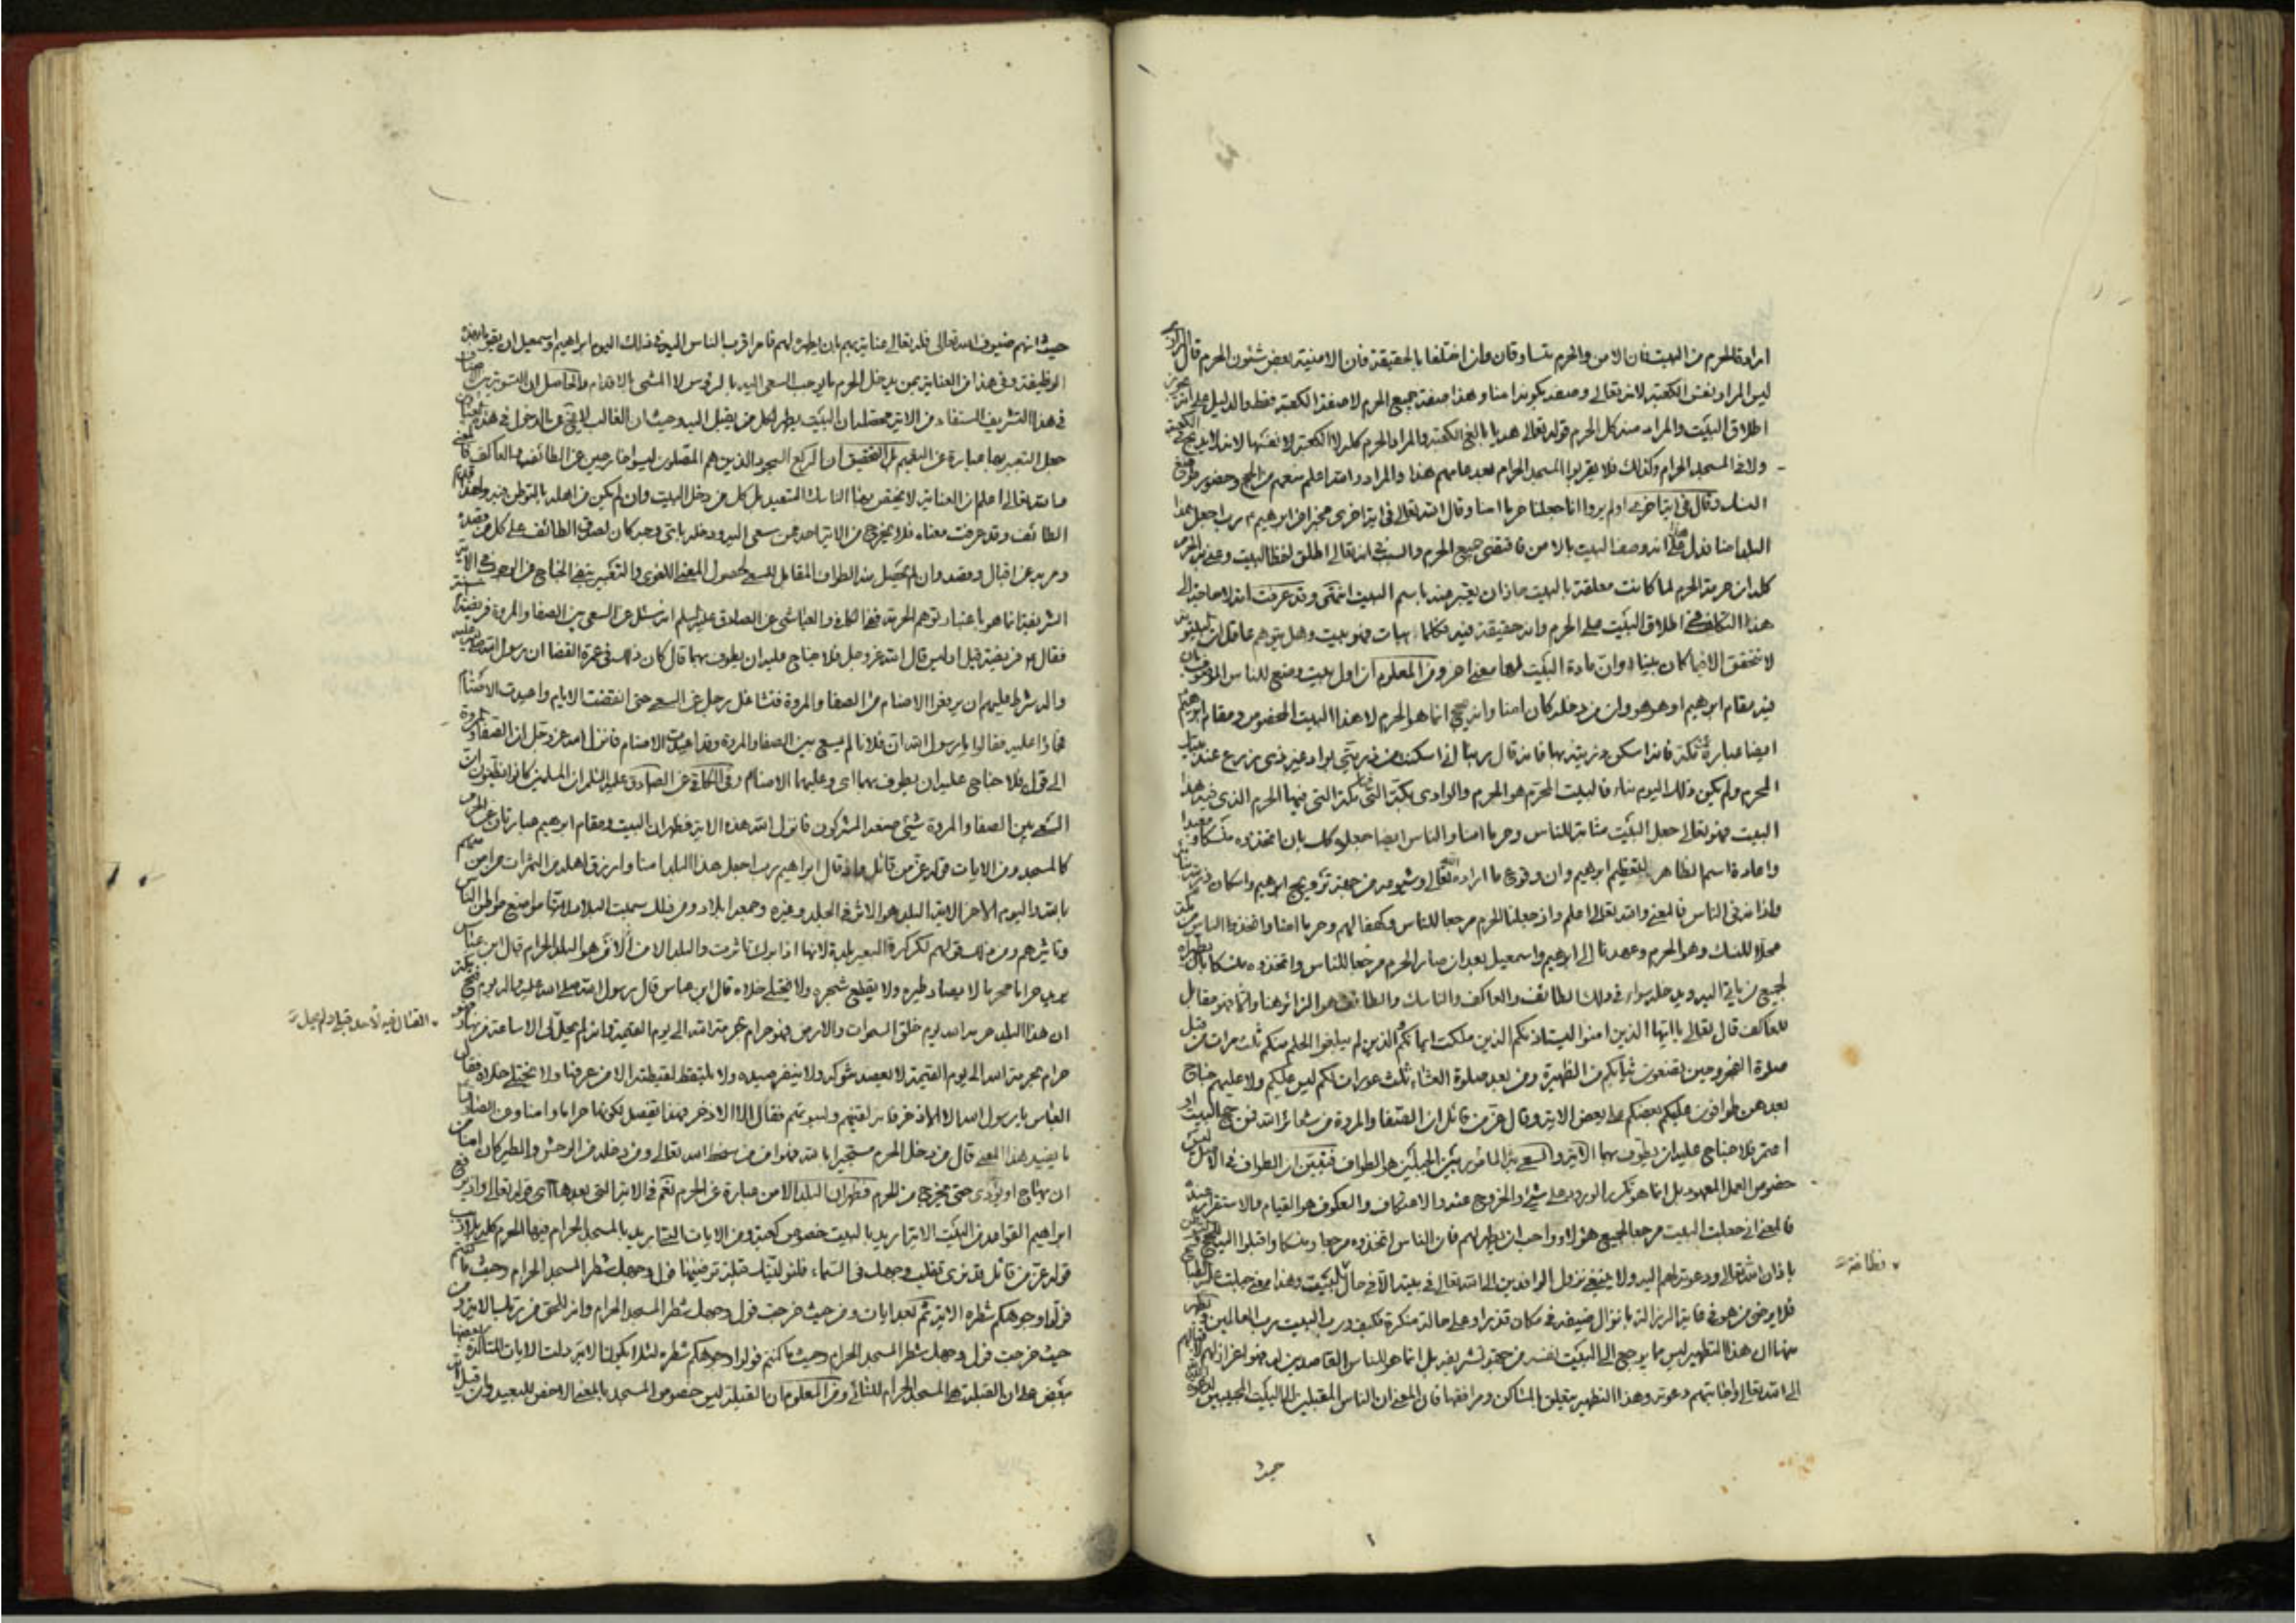 ارادة الحرم من البيت فان الامن والحرم متساوقان وان اختلفا بالحقيقة فان الامنية بعض شئون الحرم قال الرازي
ليس المراد نفس الكعبة لانه تعالى وصفه بكونه امنا وهذا صفة جميع الحرم لا صفة الكعبة فقط والدليل على انه يجوز
اطلاق البيت والمراد منه كل الحرم قوله تعالى هديا بالغ الكعبة والمراد الحرم كله لا الكعبة لا نفسها لانه لا يذبح في الكعبة
ولا في المسجد الحرام وكذلك فلا يقربوا المسجد الحرام بعد عامهم هذا والمراد والله اعلم منعهم من الحج وحضور مواضع
النسك وقال في اية اخرى اولم يروا انا جعلنا حرما امنا وقال الله تعالى في اية اخرى مخبرا عن ابرهيم رب اجعل هذا
البلد امنا فدل على انه وصف البيت بالامن فاقتضى جميع الحرم والسبب في انه تعالى اطلق لفظ البيت وعنى به الحرم
كله ان حرمة الحرم لما كانت معلقة بالبيت جاز ان يعبر عنه باسم البيت انتهى وقد عرفت انه لا حاجة الى
هذا التكلف في اطلاق البيت على الحرم وانه حقيقة فيه فكلما يبات فهو بيت وهل يتوهم عاقل ان البيتوتة
لا تتحقق الا فيما كان بيتا وان مادة البيت لها معنى اخر ومن المعلوم ان اول بيت وضع للناس الموصوف بان
فيه مقام ابرهيم او هو هو وان من دخله كان امنا وانه يحج انما هو الحرم لا هذا البيت المخصوص ومقام ابرهيم
ايضا عبارة عن مكة فانه اسكن ذريته بها فانه قال ربنا اني اسكنت من ذريتي بواد غير ذي زرع عند بيتك
المحرم ولم يكن ذلك اليوم بناء فالبيت المحرم هو الحرم والوادي مكة التي فيها الحرم الذي فيه هذا
البيت فهو تعالى جعل البيت مثابة للناس وحرما امنا والناس ايضا جعلوه كك بان اتخذوه منسكا ومعبدا
واعادة اسم الظاهر لتعظيم ابرهيم وان وقوع ما اراده الله تعالى وشيوعه من جهة ترويج ابرهيم واسكان ذريته
واذانه في الناس فالمعنى والله تعالى اعلم واذ جعلنا الحرم مرجعا للناس وكهفا لهم وحرما امنا واتخذوا الناس من مكة
محلا للنسك وهو الحرم وعهدنا الى ابرهيم واسمعيل بعد ان صار الحرم مرجعا للناس واتخذوه منسكا بان يطهراه
لجميع من ياتي اليه ويدخله سواء في ذلك الطائف والعاكف والناسك والطائف هو الزائر هنا وانما هو مقابل
للعاكف قال تعالى يا ايها الذين امنوا ليستاذنكم الذين ملكت ايمانكم والذين لم يبلغوا الحلم منكم ثلث مرات من قبل
صلوة الفجر وحين تضعون ثيابكم من الظهيرة ومن بعد صلوة العشاء ثلث عورات لكم ليس عليكم ولا عليهم جناح
بعدهن طوافون عليكم بعضكم على بعض الاية وقال عز من قائل ان الصفا والمروة من شعائر الله فمن حج البيت او
اعتمر فلا جناح عليه ان يطوف بهما الاية والسعي بين الجبلين هو الطواف فتبين ان الطواف في الاصل ليس
خصوص العمل المعهود بل انما هو تكرر الورود على شيء والخروج عنه والاعتكاف والعكوف هو القيام والاستقرار عنده
فالمعنى اني جعلت البيت مرجعا لجميع هؤلاء وواجب ان يطهر لهم فان الناس اتخذوه مرجعا ومنسكا واقبلوا اليه
باذان الله تعالى ودعوته لهم اليه ولا ينبغي نزول الوافدين الى الله تعالى في بيته الا في حال البيت وهذا معنى جبلت عليه الطباع
نظافة
فلا يرضى من هو في غاية الرذالة بانزال ضيفه في مكان قذر او على حالة منكرة فكيف ورب البيت رب العالمين فظهر
منها ان هذا التطهير ليس مما يرجع الى البيت نفسه من جهة تشريفه بل انما هو للناس القاصدين له فهو اعزاز لهم
الى الله تعالى واجابتهم دعوته وهذا التطهير يتعلق بالمساكن ومرافقها فان المعنى ان الناس المقبلين الى البيت المجيبين
حيث
حيث انهم ضيوف الله تعالى فله تعالى عناية بهم بان يطهره لهم فامر اقرب الناس اليه في ذلك اليوم ابراهيم واسمعيل ان يقوما بهذه
الوظيفة وفي هذا من العناية بمن يدخل الحرم ما يوجب السعي اليه بالرؤس لا المشي بالاقدام والحاصل ان التسوية بين
في هذا التشريف المستفاد من الاية محصله ان البيت يطهر لكل من يقبل اليه وحيث ان الغالب
جعل التعبير بها عبارة عن المقيم بل التحقيق ان الركع السجود الذين هم المصلون ليسوا خارجين عن الطائف والعاكف
الله تعالى اعلم ان العناية لا تختص بهذا الناسك المتعبد بل كل من دخل البيت وان لم يكن من اهله بالتوطن فيه
الطائف وقد عرفت معناه فلا يخرج من الاية احد ممن سعى اليه ودخله باي وجه كان لصدق الطائف على كل من قصده
ومر به عن اقبال وقصد وان لم يحصل منه الطواف المقابل للسعي لحصول المعنى اللغوي والتعبير بنفي الجناح عن الوجوه في الاية
الشريفة انما هو باعتبار توهم الحرمة ففي الكافي والعياشي عن الصادق عليه السلم انه سئل عن السعي بين الصفا والمروة فريضة ام سنة
فقال ع فريضة قيل اوليس قال الله عز وجل فلا جناح عليه ان يطوف بهما قال كان ذلك في عمرة القضا ان رسول الله صلى الله عليه
واله شرط عليهم ان يرفعوا الاصنام من الصفا والمروة فتشاغل رجل عن السعي حتى انقضت الايام واعيدت الاصنام
فجاؤا اليه فقالوا يا رسول الله ان فلانا لم يسع بين الصفا والمروة وقد اعيدت الاصنام فانزل الله عز وجل ان الصفا والمروة
الى قوله فلا جناح عليه ان يطوف بهما اي وعليهما الاصنام وفي الكافي عن الصادق عليه السلم ان المسلمين كانوا يظنون ان
السعي بين الصفا والمروة شيء صنعه المشركون فانزل الله هذه الاية فظهر ان البيت ومقام ابرهيم عبارتان عن الحرم
كالمسجد ومن الايات قوله عز من قائل واذ قال ابراهيم رب اجعل هذا البلد امنا وارزق اهله من الثمرات من امن منهم
بالله واليوم الاخر الاية البلد هو الاثر في الجلد وغيره وجمعه ابلاد ومن ذلك سميت البلاد لانها مواضع مواطن الناس
وتاثيرهم ومن ذلك قولهم لكركرة البعير بلدة لانها اذا برك تاثرت والبلد الامن الان هو البلد الحرام قال ابن عباس
يريد حراما محرما لا يصاد طيره ولا يقطع شجره ولا يختلى خلاه قال ابن عباس قال رسول الله صلى الله عليه واله يوم فتح مكة
ان هذا البلد حرمه الله يوم خلق السموات والارض فهو حرام بحرمة الله الى يوم القيمة وانه لم يحل لي الا ساعة من نهار فهو
القتال فيه لاحد قبلي ولم يحل
حرام بحرمة الله الى يوم القيمة لا يعضد شوكه ولا ينفر صيده ولا يلتقط لقطته الا من عرفها ولا يختلى خلاه فقال
العباس يا رسول الله الا الاذخر فانه لقينهم ولبيوتهم فقال الا الاذخر
ما يفيد هذا المعنى قال من دخل الحرم مستجيرا بالله فهو امن من سخط الله تعالى ومن دخله من الوحش والطير كان امنا من
ان يهاج او يؤذى حتى يخرج من الحرم فظهر ان البلد الامن عبارة عن الحرم نعم في الاية التي بعدها اي قوله تعالى واذ يرفع
ابراهيم القواعد من البيت الاية اريد بالبيت خصوص كعبة ومن الايات التي اريد بالمسجد الحرام فيها الحرم كله بلا ريب
قوله عز من قائل قد نرى تقلب وجهك في السماء فلنولينك قبلة ترضيها فول وجهك شطر المسجد الحرام وحيث ما كنتم
فولوا وجوهكم شطره الاية ثم بعد ايات ومن حيث خرجت فول وجهك شطر المسجد الحرام وانه للحق من ربك الاية ومن
حيث خرجت فول وجهك شطر المسجد الحرام وحيث ما كنتم فولوا وجوهكم شطره لئلا يكون الاية دلت الايات المتاكدة بعضها
ببعض على ان القبلة هي المسجد الحرام للنائي ومن المعلوم ان القبلة ليس خصوص المسجد بالمعنى الاخص للبعيد وان قيل